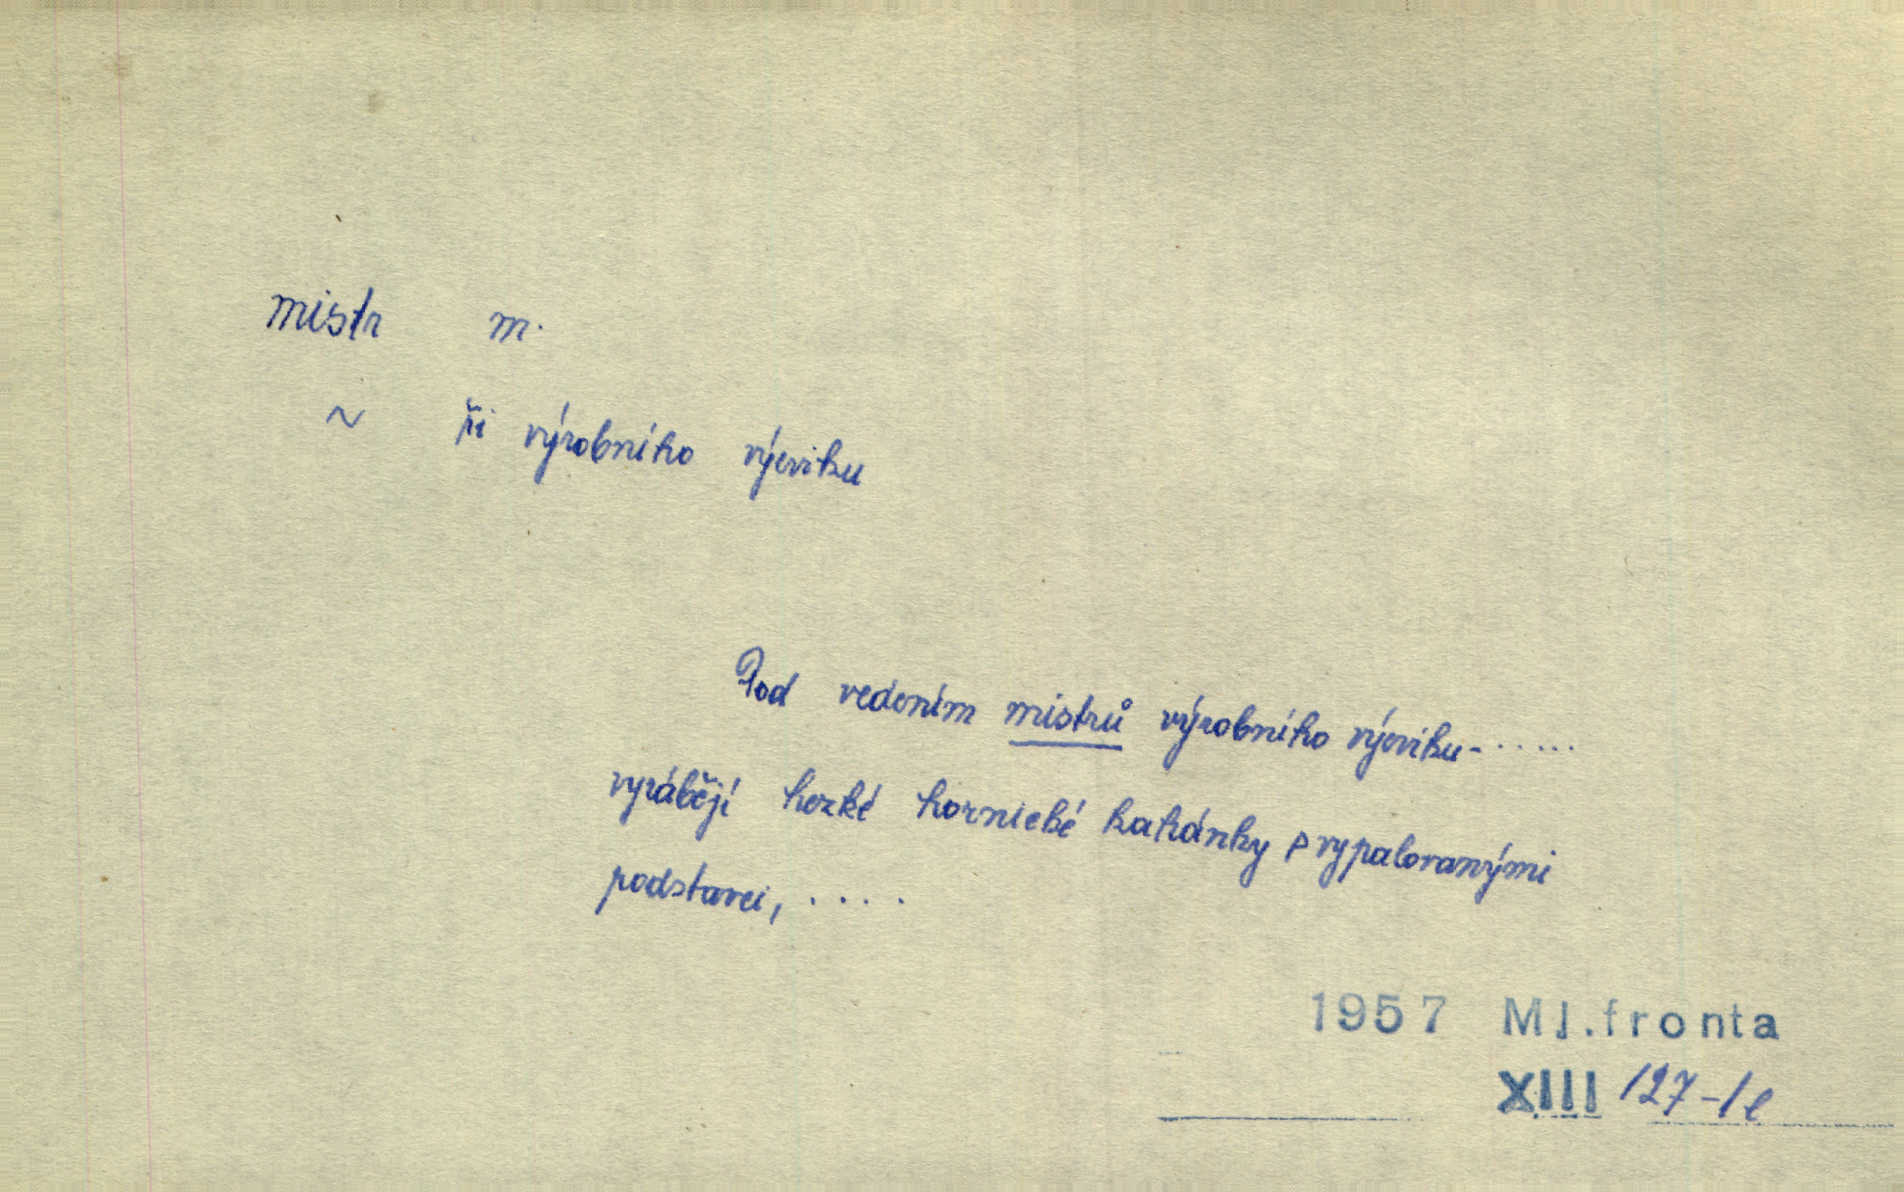 mistr m.
~ ři výrobního výcviku
Pod vedením mistrů výrobního výcviku-.....
vyrábějí hezké hornické kahánky s vypalovanými
podstavci, ....
1957 Ml.fronta
XIII 127-1c